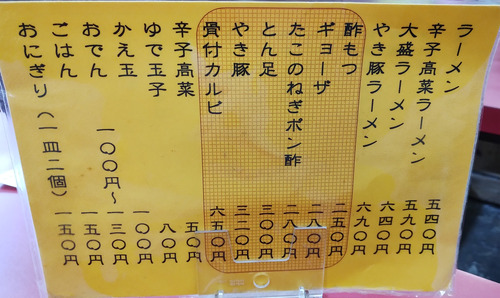 ラーメン 五四〇円
辛子高菜ラーメン 五九〇円
大盛ラーメン 六四〇円
やき豚ラーメン 六九〇円
酢もつ 二五〇円
ギョーザ 二八〇円
たこのねぎポン酢 二八〇円
とん足 三〇〇円
やき豚 三二〇円
骨付カルビ 六五〇円
辛子高菜 五〇円
ゆで玉子 八〇円
かえ玉 一〇〇円
おでん 一〇〇円〜一三〇円
ごはん 一五〇円
おにぎり(一皿二個) 一五〇円